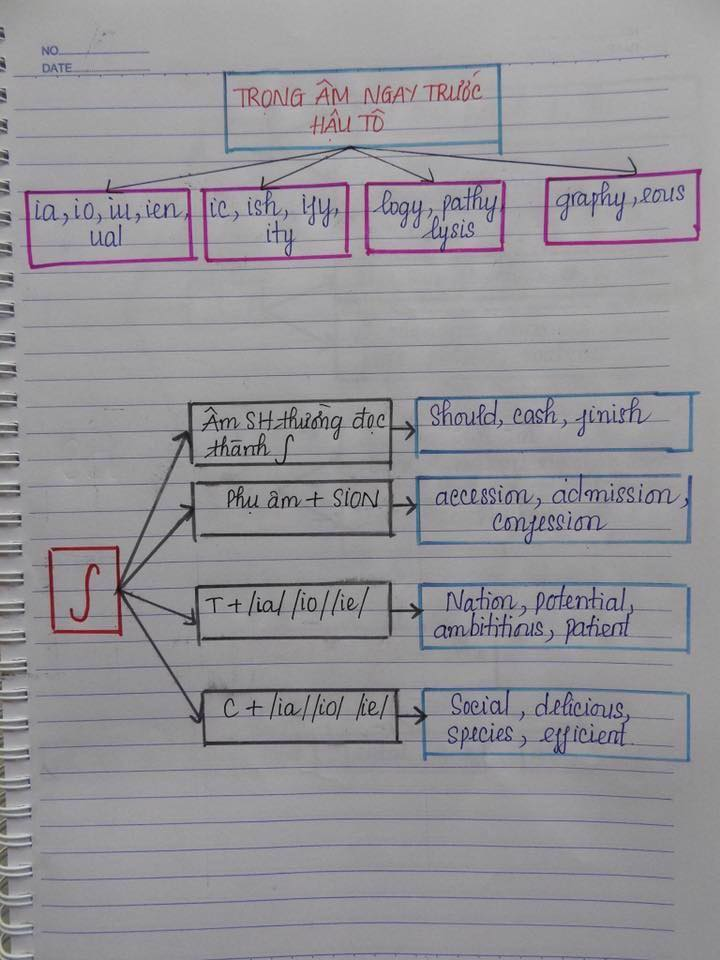 NO
DATE
TRỌNG ÂM NGAY TRƯỚC
HẬU TỐ
ia, io, iu, ien,
ual
ic, ish, ify,
ity
logy, pathy
lysis
graphy, eous
Âm SH thường đọc
thành ʃ
Should, cash, finish
Phụ âm + SION
accession, admission,
confession
ʃ
T + /ia/ /io/ /ie/
Nation, potential,
ambititious, patient
C + /ia/ /io/ /ie/
Social, delicious,
species, efficient